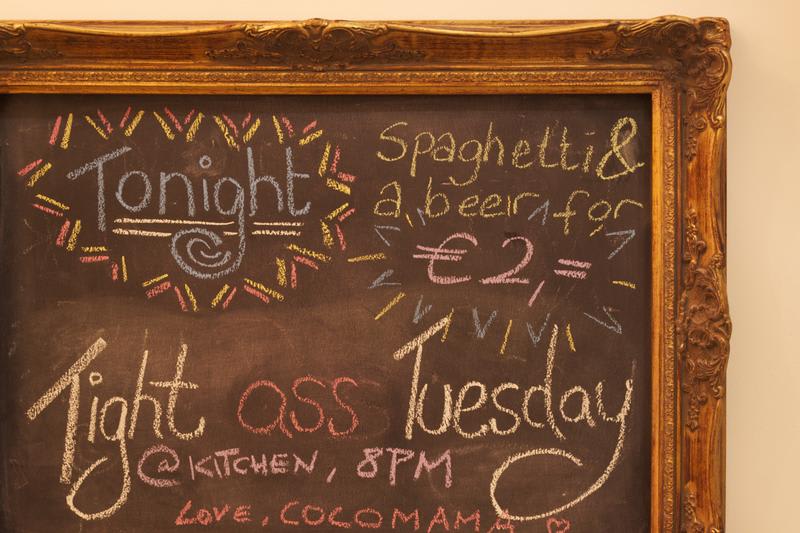 Tonight
Spaghetti &
a beer for
€2,=
Tight ass Tuesday
@ KITCHEN, 8PM
LOVE, COCOMAMA ♡